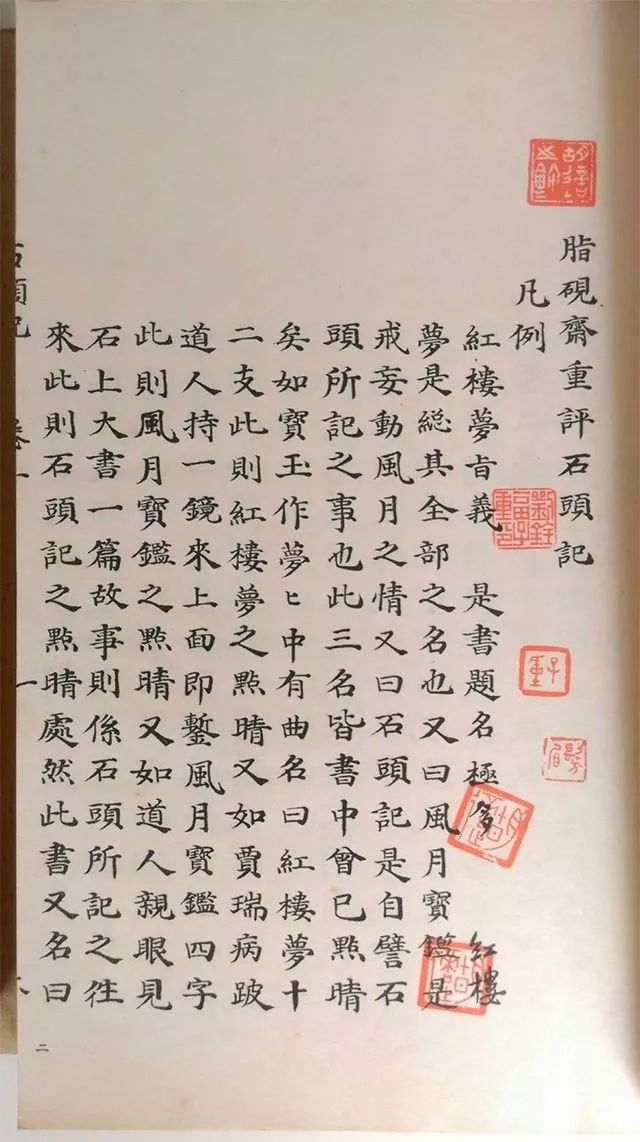 脂硯齋重評石頭記
凡例
紅樓夢旨義 是書題名極多 紅樓
夢是総其全部之名也又曰風月寶鑑是
戒妄動風月之情又曰石頭記是自譬石
頭所記之事也此三名皆書中曾已㸃晴
矣如寶玉作夢ヒ中有曲名曰紅樓夢十
二支此則紅樓夢之㸃晴又如賈瑞病跛
道人持一鏡來上面即鏨風月寶鑑四字
此則風月寶鑑之㸃晴又如道人親眼見
石上大書一篇故事則係石頭所記之徃
來此則石頭記之㸃晴處然此書又名曰
石頭記 卷一 一
二
子重